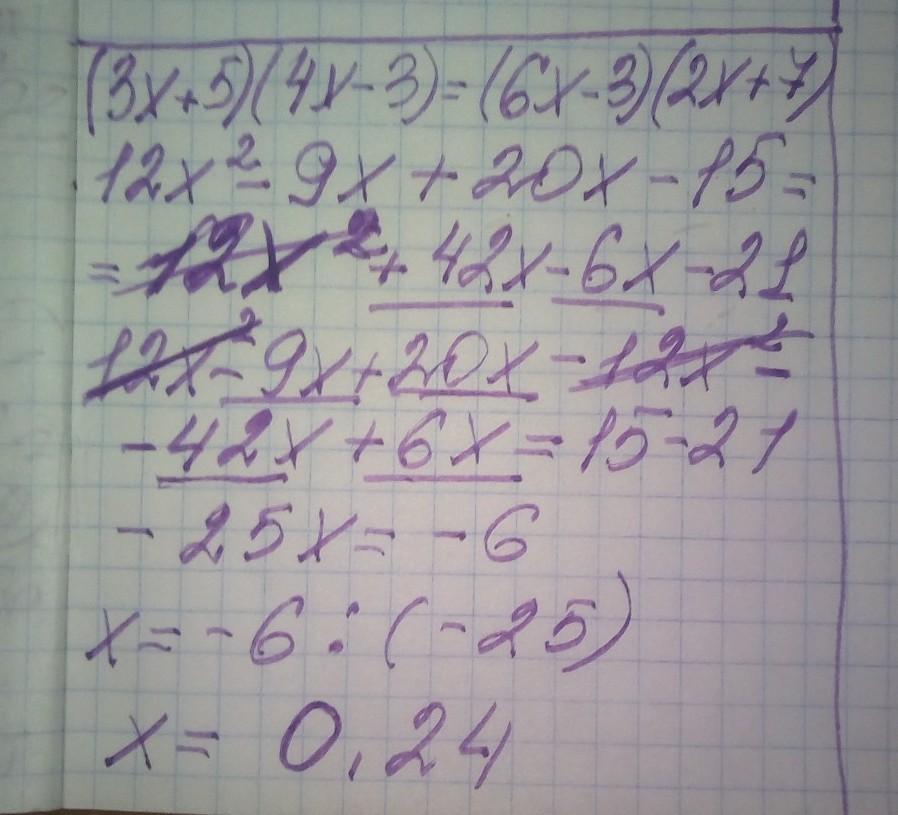 (3x+5)(4x-3)=(6x-3)(2x+7)
12x²-9x+20x-15=
=12x²+42x-6x-21
12x²-9x+20x-12x²-
-42x+6x=15-21
-25x=-6
x=-6:(-25)
x=0,24